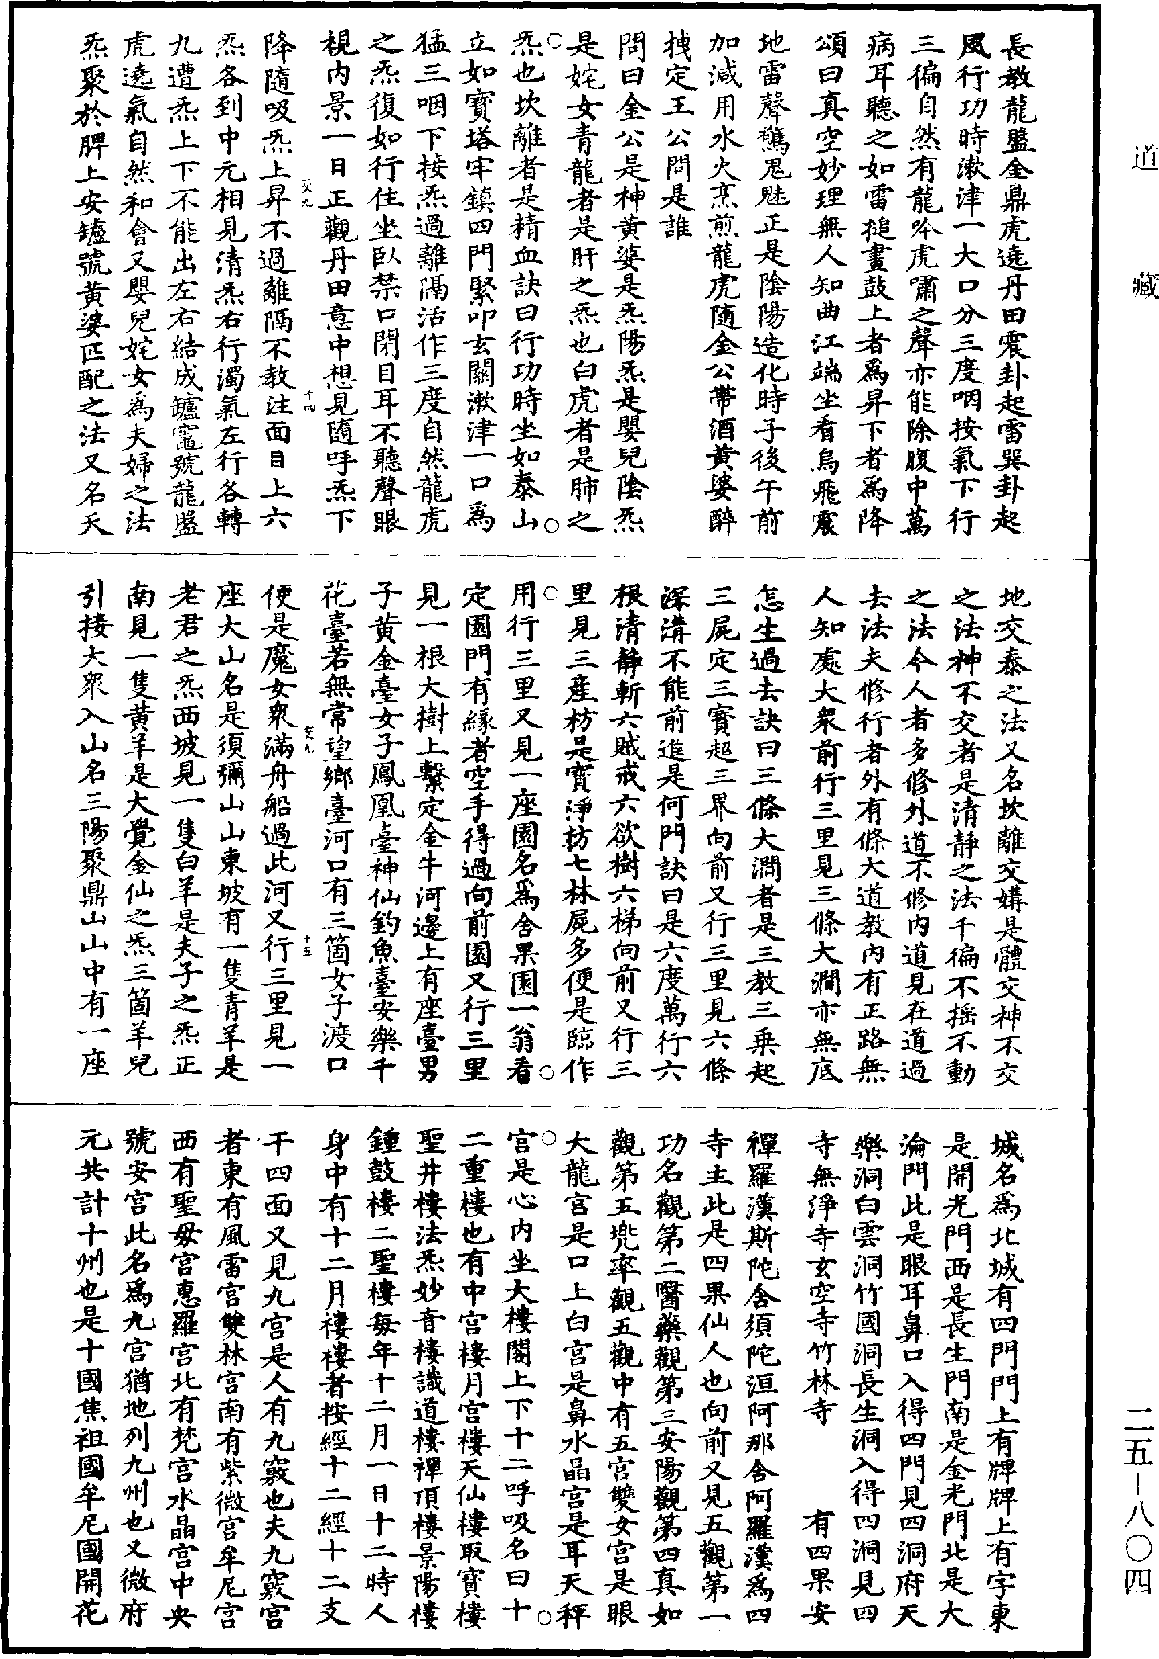 道藏
長教龍盤金鼎虎遶丹田震卦起雷巽卦起
風行功時漱津一大口分三度咽按氣下行
三徧自然有龍吟虎嘯之聲亦能除腹中萬
病耳聽之如雷搥畫鼓上者為昇下者為降
頌曰真空妙理無人知曲江端坐看烏飛震
地雷聲驚鬼魅正是陰陽造化時子後午前
加減用水火烹煎龍虎隨金公帶酒黃婆醉
拽定王公問是誰
問曰金公是神黃婆是炁陽炁是嬰兒陰炁
是姹女青龍者是肝之炁也白虎者是肺之
炁也坎離者是精血訣曰行功時坐如泰山
立如寶塔牢鎮四門緊叩玄關漱津一口為
猛三咽下接炁過離隔活作三度自然龍虎
之炁復如行住坐臥禁口閉目耳不聽聲眼
視內景一日正觀丹田意中想見隨呼炁下
交九
十四
降隨吸炁上昇不過離隔不教注面目上六
炁各到中元相見清炁右行濁氣左行各轉
九遭炁上下不能出左右結成罏竈號龍盤
虎遶氣自然和會又嬰兒姹女為夫婦之法
炁聚於脾上安罏號黃婆匹配之法又名天
地交泰之法又名坎離交媾是體交神不交
之法神不交者是清靜之法千徧不搖不動
之法今人者多修外道不修內道見在道過
去法夫修行者外有條大道教內有正路無
人知處大衆前行三里見三條大澗亦無底
怎生過去訣曰三條大澗者是三教三乗起
三屍定三寶超三界向前又行三里見六條
深溝不能前進是何門訣曰是六度萬行六
根清靜斬六賊戒六欲樹六梯向前又行三
里見三座枋是寶淨枋七林屍多便是臨作
用行三里又見一座園名為舍果園一翁看
定園門有緣者空手得過向前園又行三里
見一根大樹上繫定金牛河邊上有座臺男
子黃金臺女子鳳凰臺神仙釣魚臺安樂千
花臺若無常望鄉臺河口有三箇女子渡口
交九
十五
便是魔女衆滿舟船過此河又行三里見一
座大山名是須彌山山東坡有一隻青羊是
老君之炁西坡見一隻白羊是夫子之炁正
南見一隻黃羊是大覺金仙之炁三箇羊兒
引接大衆入山名三陽聚鼎山山中有一座
城名為北城有四門門上有牌牌上有字東
是開光門西是長生門南是金光門北是大
淪門此是眼耳鼻口入得四門見四洞府天
樂洞白雲洞竹國洞長生洞入得四洞見四
寺無淨寺玄空寺竹林寺　　有四果安
禪羅漢斯陀含須陀洹阿那含阿羅漢為四
寺主此是四果仙人也向前又見五觀第一
功名觀第二醫藥觀第三安陽觀第四真如
觀第五兜率觀五觀中有五宮雙女宮是眼
大龍宮是口上白宮是鼻水晶宮是耳天秤
宮是心內坐大樓閣上下十二呼吸名曰十
二重樓也有中宮樓月宮樓天仙樓取寶樓
聖井樓法炁妙音樓議道樓禪頂樓景陽樓
鍾鼓樓二聖樓每年十二月一日十二時人
身中有十二月褸褸者按經十二經十二支
干四面又見九宮是人有九竅也夫九竅宮
者東有風雷宮雙林宮南有紫微宮牟尼宮
西有聖毋宮惠羅宮北有梵宮水晶宮中央
號安宮此名為九宮猶地列九州也又微府
元共計十州也是十國焦祖國牟尼國開花
二五—八〇四